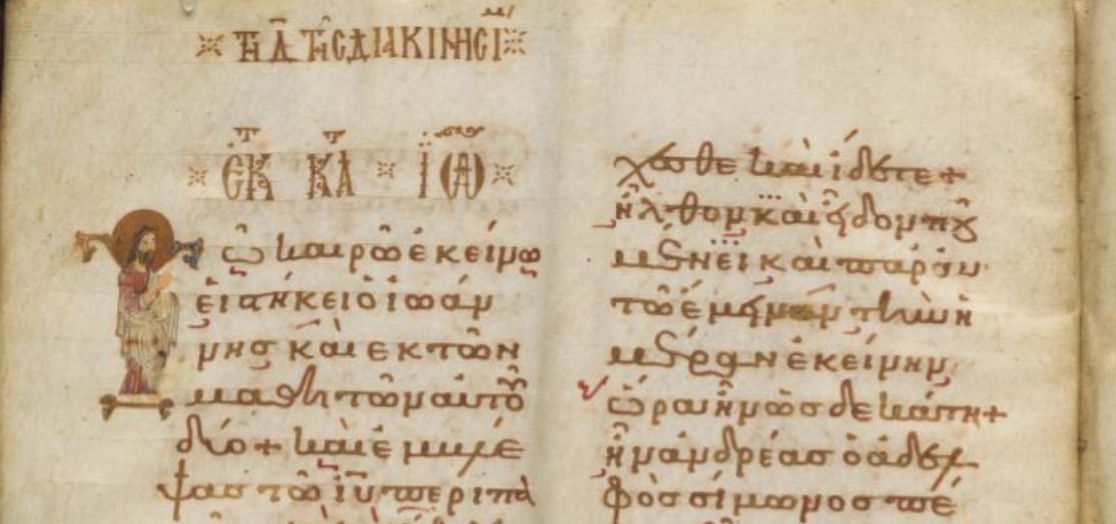 ※ ΤΗ Δ ΤΗС ΔΙΑΚΙΝΗСΙΜ ※
※ ἘΚ Τ ΚΑΤ ※ ΪΩ ※
Τῶ καιρῶ ἐκείνω
εἱστήκει ὁ ἰωάν
νησ καὶ ἐκ τῶν
μαθητῶν αὐτοῦ
δύο + καὶ ἐμβλέ
ψασ τῶ ἰυ περιπα
χεσθε καὶ ἴδετε +
ἦλθον καὶ εἶδον ποῦ
μένει καὶ παρ αυ
τῶ ἔμειναν τὴν ἡ
μέραν ἐκείνην
ὥρα ἦν ὡσ δεκάτη +
ἦν ἀνδρέασ ὁ ἀδελ
φὸσ σίμωνοσ πέ